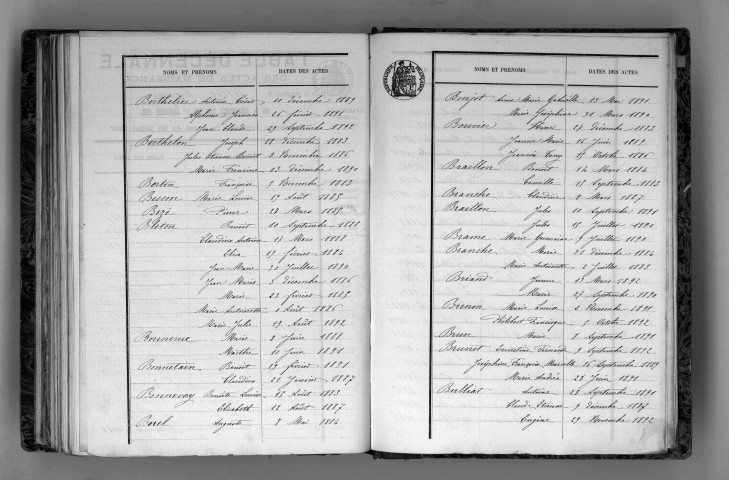 NOMS ET PRÉNOMS DATES DES ACTES
Berthelier Antoine 10 décembre 1889
Alphonse 26 février 1891
Jean Claude 29 Septembre 1892
Berthelon Joseph 18 décembre 1883
Jules Etienne Benoit 3 Novembre 1886
Marie Francine 23 décembre 1890
Bertin François 5 Novembre 1883
Besson Marie Louise 19 Août 1885
28 Mars 1889
Bleton Benoit 10 Septembre 1888
Claudine Antoinette 13 Mars 1888
Elisa 19 février 1884
Jean Marie 30 Juillet 1890
Jean Marie 5 décembre 1886
Marie 23 février 1885
Marie Antoinette 1 Août 1886
Marie Julie 19 Août 1892
Bonnerue Marie 2 Juin 1888
Marthe 10 Juin 1891
Bonnetain Benoit 13 février 1891
Claudine 22 Janvier 1887
Bonnevay Benoite Louise 15 Août 1883
Elisabeth 12 Août 1887
Borel Auguste 8 Mai 1884
NOMS ET PRÉNOMS DATES DES ACTES
Anne Marie 13 Mai 1891
Marie Joséphine 31 Mars 1890
Bouvier Henri 27 décembre 1883
Jeanne Marie 16 Juin 1889
Jeannie 15 Octobre 1886
Braillon Benoit 14 Mars 1884
Camille 15 Septembre 1883
Branche Claudine 2 Mars 1887
Braillon Jules 10 Septembre 1891
Jules 15 Juillet 1890
Brame Marie 5 Juillet 1890
Branche Marie 21 décembre 1884
Marie Antoinette 2 Juillet 1883
Briand Jeanne 13 Mars 1892
Marie 27 Septembre 1890
Brenon Marie Louise 2 Novembre 1891
Philibert Francisque 5 Octobre 1892
Brun Marie 8 Septembre 1891
Brunet Ernestine Fernande 9 Septembre 1892
Joséphine Françoise Marcelle 16 Septembre 1889
Marie Andrée 23 Juin 1891
Bulliat Antoine 23 Septembre 1890
Claude Etienne 9 décembre 1887
Eugène 29 Novembre 1892